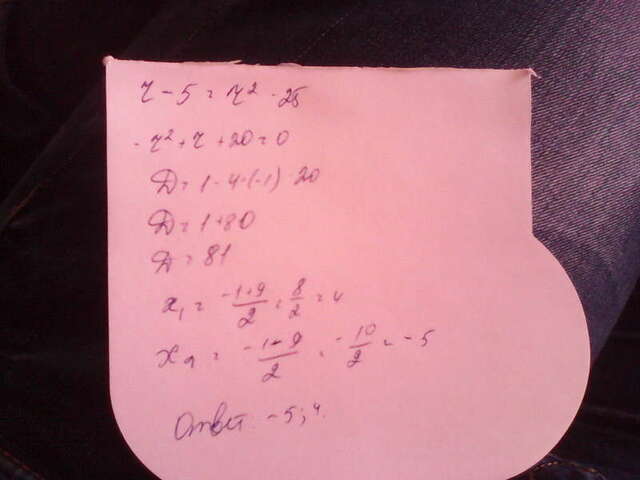 r - 5 = r² - 25
- r² + r + 20 = 0
D = 1 - 4 · (-1) · 20
D = 1 + 80
D = 81
x₁ = \frac{-1+9}{2} = \frac{8}{2} = 4
x₂ = \frac{-1-9}{2} = -\frac{10}{2} = -5
Ответ: -5; 4.